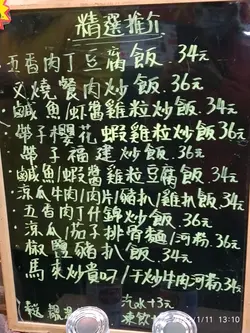 精選推介
五香肉丁豆腐飯.34元
叉燒餐肉炒飯.36元
鹹魚/蝦醬雞粒炒飯.34元
帶子櫻花蝦雞粒炒飯36元
帶子福建炒飯.36元
鹹魚/蝦醬雞粒豆腐飯34元
涼瓜牛肉/肉片/豬扒/雞扒飯34元
五香肉丁什錦炒飯.36元
涼瓜/茄子排骨麵/河粉.36元
椒鹽豬扒飯.34元
馬來炒貴叼/干炒牛肉河粉34元
汽水+3元
凍飲
1/11 13:10